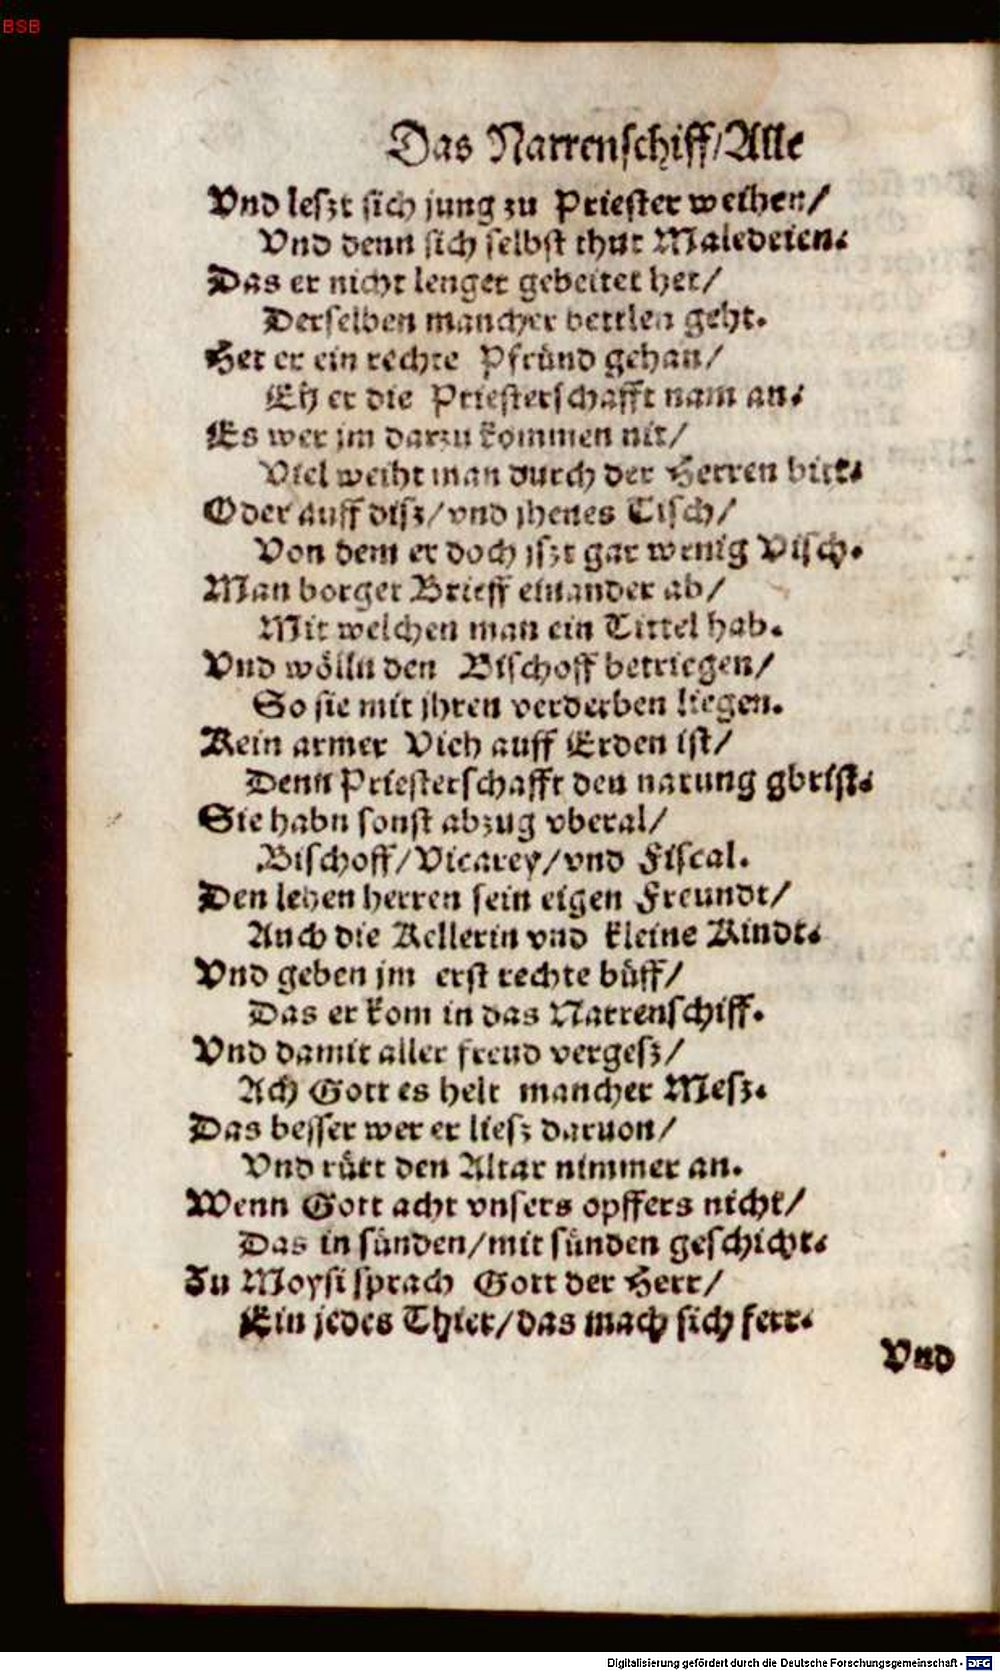 BSB
Das Narrenschiff/Alle
Vnd leszt sich jung zu Priester weihen/
Vnd denn sich selbst thut Maledeien.
Das er nicht lenger gebeitet het/
Derselben mancher bettlen geht.
Het er ein rechte Pfründ gehan/
Eh er die Priesterschafft nam an.
Es wer jm darzu kommen nit/
Viel weiht man durch der Herren bitt.
Oder auff disz/vnd jhenes Tisch/
Von dem er doch jszt gar wenig Visch.
Man borget Brieff einander ab/
Mit welchen man ein Tittel hab.
Vnd wölln den Bischoff betriegen/
So sie mit jhren verderben liegen.
Kein armer Vich auff Erden ist/
Denn Priesterschafft den narung gbrist.
Sie habn sonst abzug vberal/
Bischoff/Vicarey/vnd Fiscal.
Den lehen herren sein eigen Freundt/
Auch die Kellerin vnd kleine Kindt.
Vnd geben jm erst rechte büff/
Das er kom in das Narrenschiff.
Vnd damit aller freud vergesz/
Ach Gott es helt mancher Mesz.
Das besser wer er liesz daruon/
Vnd rütt den Altar nimmer an.
Wenn Gott acht vnsers opffers nicht/
Das in sünden/mit sünden geschicht.
Zu Moysi sprach Gott der Herr/
Ein jedes Thier/das mach sich ferr.
Vnd
Digitalisierung gefördert durch die Deutsche Forschungsgemeinschaft - DFG